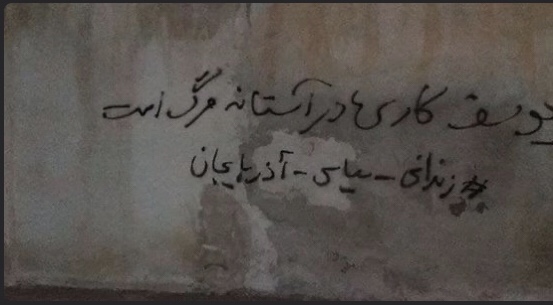 یوسف کاری ها در آستانه مرگ است
#زندانی-سیاسی-آذربایجان